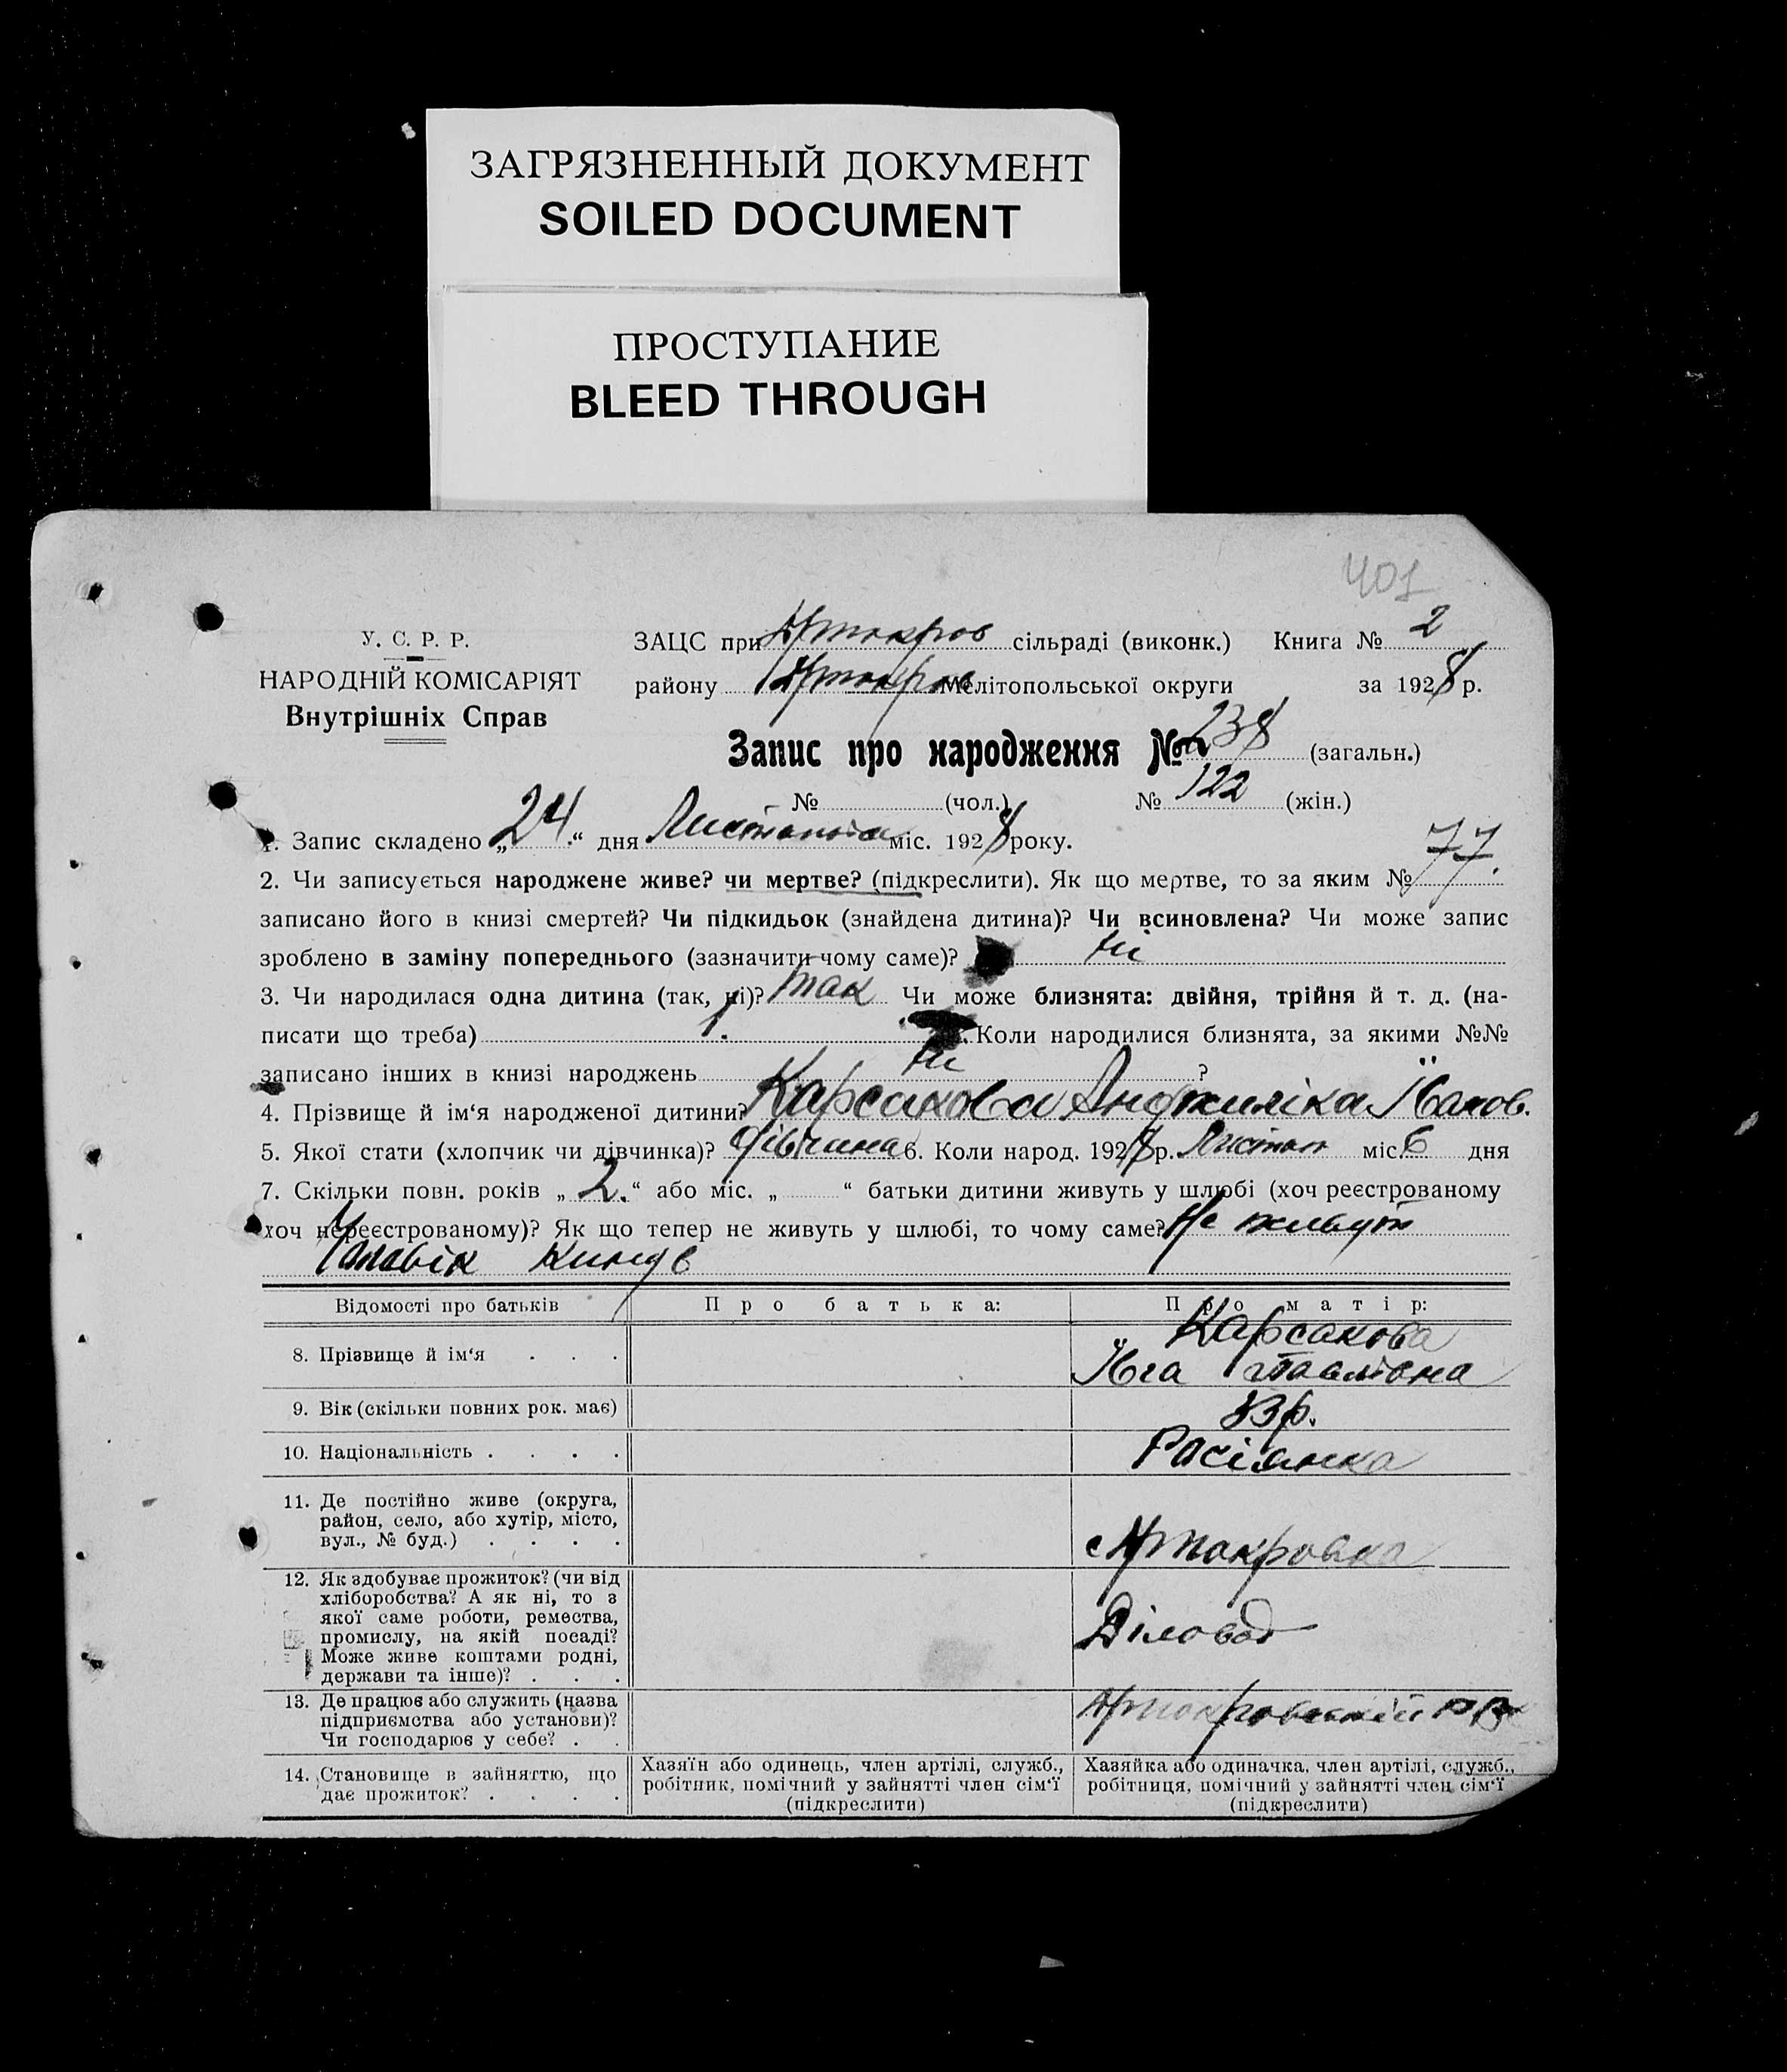 ЗАГРЯЗНЕННЫЙ ДОКУМЕНТ
SOILED DOCUMENT
ПРОСТУПАНИЕ
BLEED THROUGH
401
У. С. Р. Р.
НАРОДНІЙ КОМІСАРІЯТ
Внутрішніх Справ
ЗАЦС при сільраді (виконк.) Книга № 2
району Мелітопольської округи за 1928 р.
Запис про народження № 238 (загальн.)
№ (чол.) № 122 (жін.)
1. Запис складено „24.“ дня Листопада міс. 1928 року.
2. Чи записується народжене живе? чи мертве? (підкреслити). Як що мертве, то за яким № 77.
записано його в книзі смертей? Чи підкидьок (знайдена дитина)? Чи всиновлена? Чи може запис
зроблено в заміну попереднього (зазначити чому саме)? ні
3. Чи народилася одна дитина (так, ні)? так Чи може близнята: двійня, трійня й т. д. (на-
писати що треба) 1. Коли народилися близнята, за якими №№
записано інших в книзі народжень ні ?
4. Прізвище й ім‘я народженої дитини? Карсакова Анджиліка Їванов.
5. Якої стати (хлопчик чи дівчинка)? дівчина 6. Коли народ. 1928 р. Листоп міс 6 дня
7. Скільки повн. років „2.“ або міс. „ “ батьки дитини живуть у шлюбі (хоч реєстрованому
хоч нереєстрованому)? Як що тепер не живуть у шлюбі, то чому саме? Не живут
Чоловік
Відомості про батьків Про батька: Про матір:
8. Прізвище й ім‘я . . . Карсакова
Павловна
9. Вік (скільки повних рок. має) р.
10. Національність . . . . Расіянка
11. Де постійно живе (округа,
район, село, або хутір, місто,
вул., № буд.) . . . .
12. Як здобуває прожиток? (чи від
хліборобства? А як ні, то з
якої саме роботи, ремества,
промислу, на якій посаді?
Може живе коштами родні,
держави та інше)? . . .
Діловод
13. Де працює або служить (назва
підприємства або установи)?
Чи господарює у себе? . .
14. Становище в зайняттю, що
дає прожиток? . . . .
Хазяїн або одинець, член артілі, служб.,
робітник, помічний у зайнятті член сім‘ї
(підкреслити)
Хазяйка або одиначка, член артілі, служб.,
робітниця, помічний у зайнятті член сім‘ї
(підкреслити)